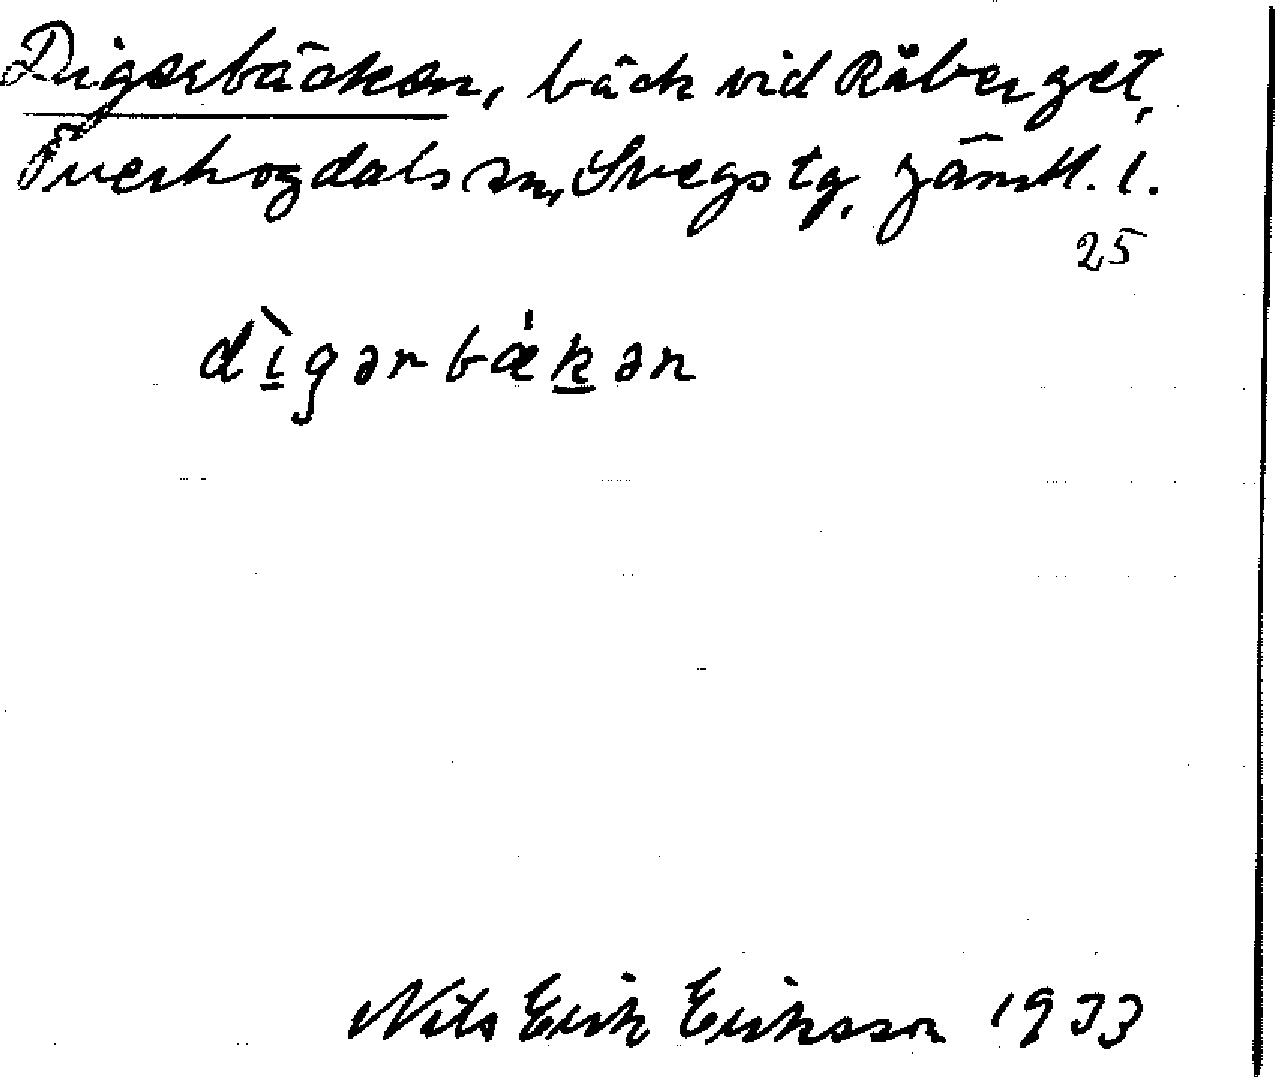 Digerbäcken, bäck vid Råberget,
Överhogdals sn, Svegs tg, Jämtl. l.
25
dìgərbækən
Nils Erik Eriksson 1933